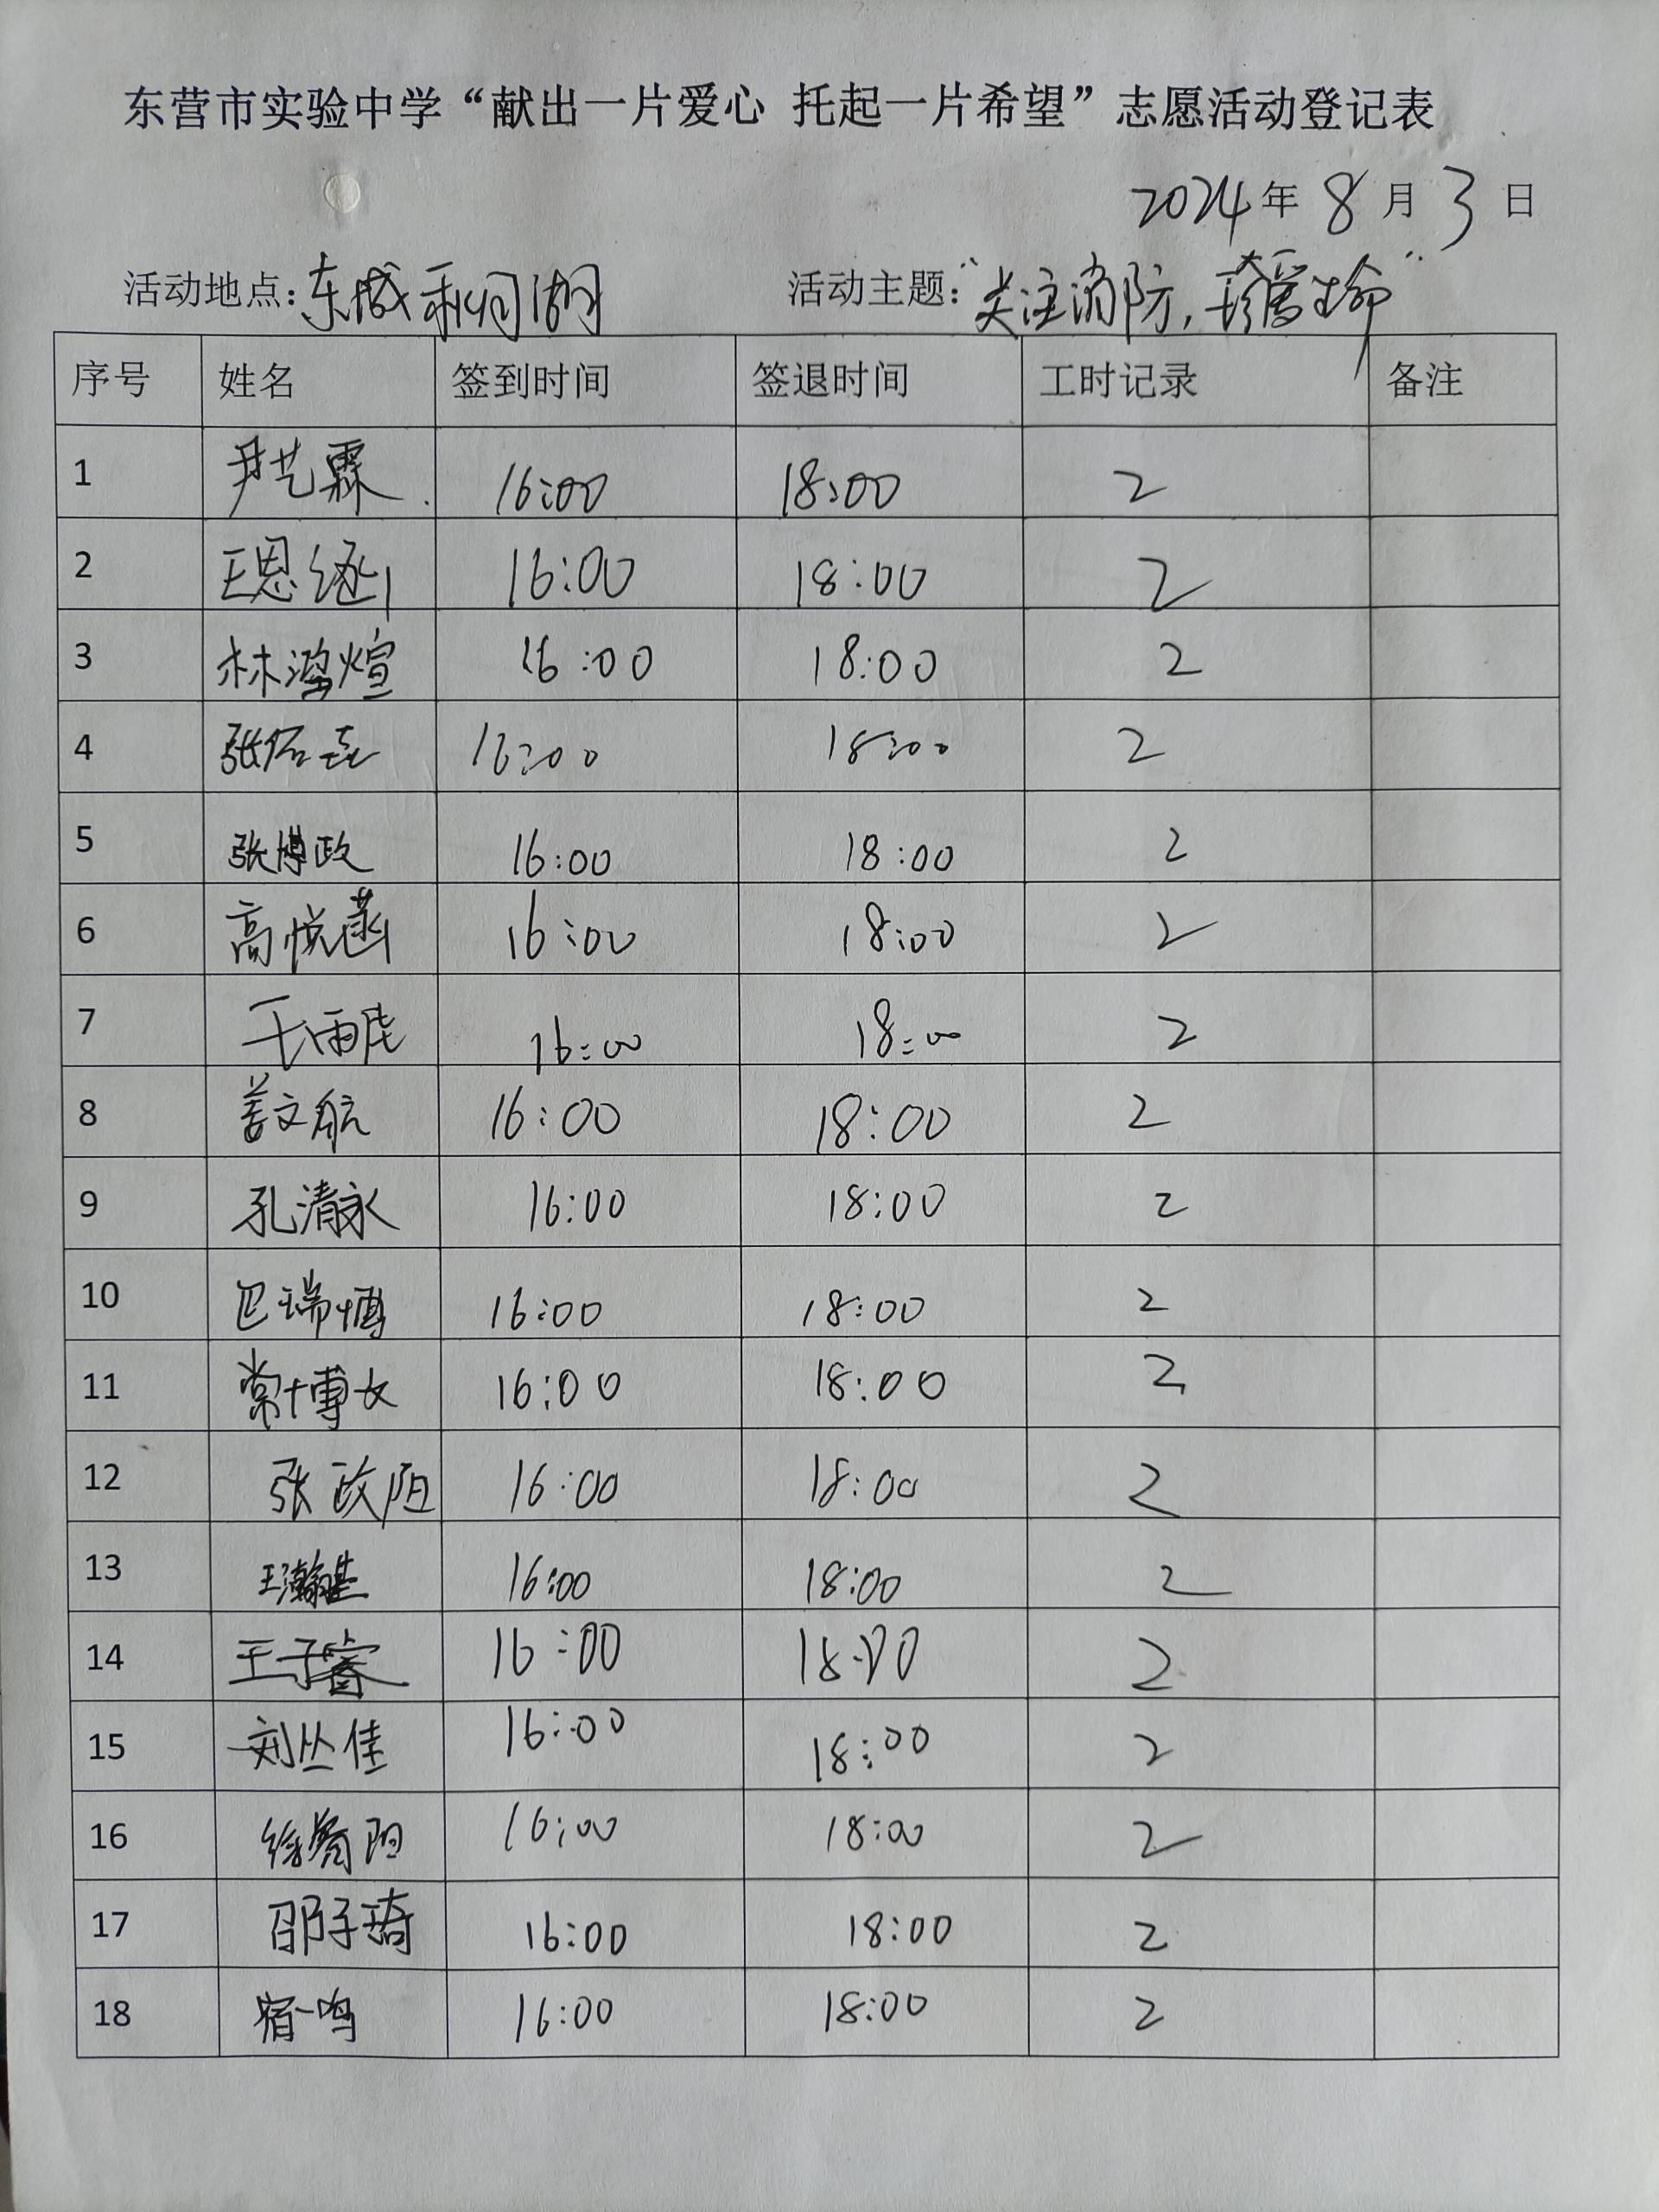 东营市实验中学“献出一片爱心 托起一片希望”志愿活动登记表
2024年 8 月 3 日
活动地点:东城利河湖 活动主题:“关注消防,珍爱生命”
序号 姓名 签到时间 签退时间 工时记录 备注
1 尹艺霖 16:00 18:00 2
2 王恩 16:00 18:00 2
3 林鸿煊 16:00 18:00 2
4 张佑 16:00 18:00 2
5 张博政 16:00 18:00 2
6 高悦菡 16:00 18:00 2
7 16:00 18:00 2
8 姜文航 16:00 18:00 2
9 孔清泳 16:00 18:00 2
10 巴瑞博 16:00 18:00 2
11 常博文 16:00 18:00 2
12 张政阳 16:00 18:00 2
13 王瀚 16:00 18:00 2
14 王子睿 16:00 18:00 2
15 刘丛佳 16:00 18:00 2
16 徐阳 16:00 18:00 2
17 邵子琦 16:00 18:00 2
18 宿一鸣 16:00 18:00 2